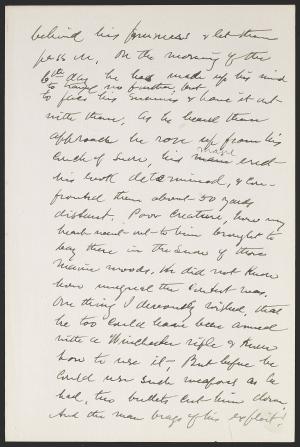 behind his pursuers & let them
pass on. On the morning of the
6th day he had made up his mind
to travel no further, but
to face his enemies & have it out
with them. As he heard them
approach he rose up from his
couch of snow, his mane erect
his look determined, & con-
fronted them about 50 yards
distant. Poor creature, how my
heart went out to him brought to
bay there in the snow of those
Maine woods. He did not know
how unequal the contest was.
One thing I devoutly wished, that
he too could have been armed
with a Winchester rifle & knew
how to use it, – But before he
could use such weapons as he
had, two bullets cut him down,
And the man brags of his exploit!